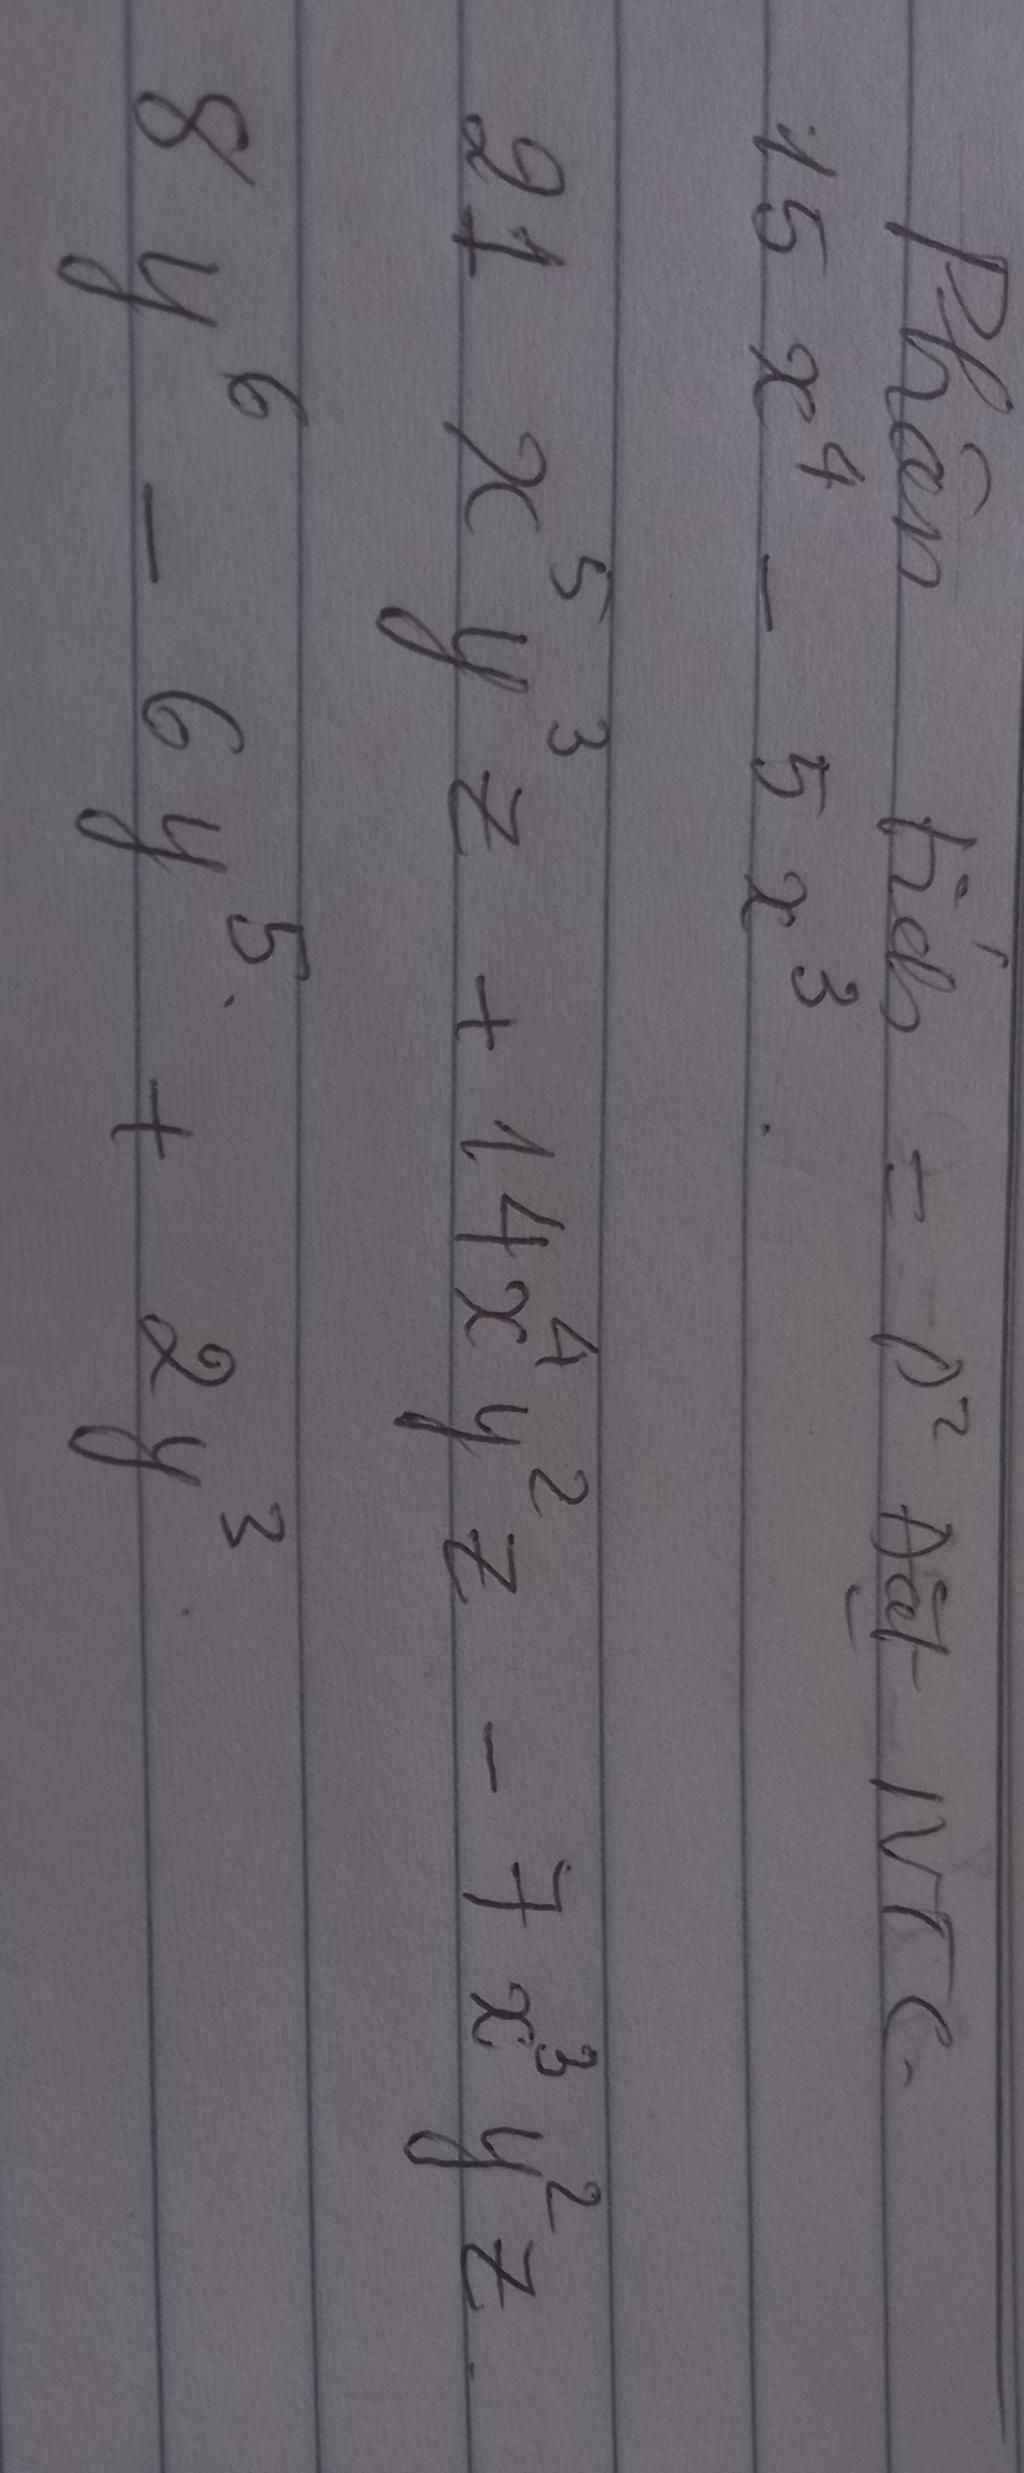 Phân tích = p² Đặt NTC.
15x⁴ - 5x³.
21x⁵y³z + 14x⁴y²z - 7x³y²z
8y⁶ - 6y⁵ + 2y³